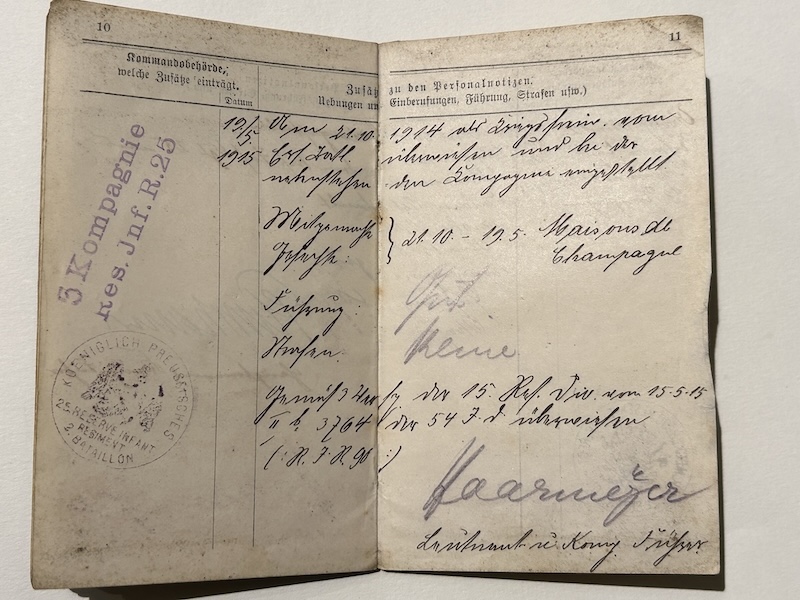 10
11
Kommandobehörde,
welche Zusätze einträgt.
Datum
Zusätze zu den Personalnotizen.
Einberufungen, Führung, Strafen usw.)
5 Kompagnie
Res. Inf. R. 25
19/5. 1915
Am 21.10. 1914 als Kriegsfreiw. vom
Ers. Batl. überwiesen und bei der
nebenstehenden Kompagnie eingestellt.
Mitgemachte
Gefechte: } 21.10. – 19.5. Maisons de
Champagne
Führung: Gut
Strafen: Keine
Gemäß der 15. Res. Div. vom 15.5.15
II b. 3764 der 54 I. D. überwiesen
(: R. I. R. 90 :)
Haarmeyer
Leutnant u. Komp. Führer.
KOENIGLICH PREUSSISCHES
25. RESERVE INFANT
REGIMENT
2. BATAILLON